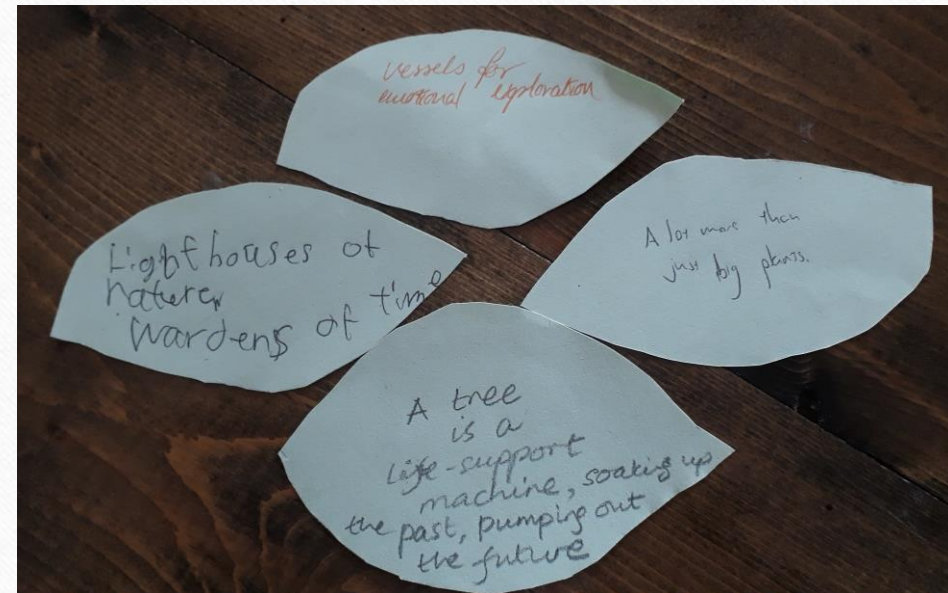 vessels for
emotional exploration
Lighthouses of
nature,
wardens of time
A lot more than
just big plants.
A tree
is a
life-support
machine, soaking up
the past, pumping out
the future